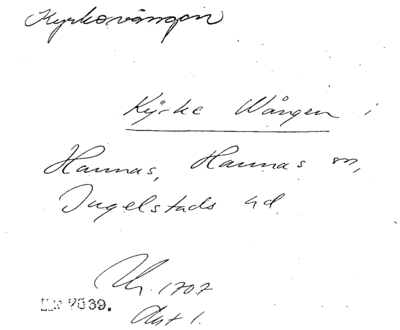 Kyrkovången
Kÿrke Wången i
Hannas, Hannas sn,
Ingelstads hd.
1707
Akt 1.